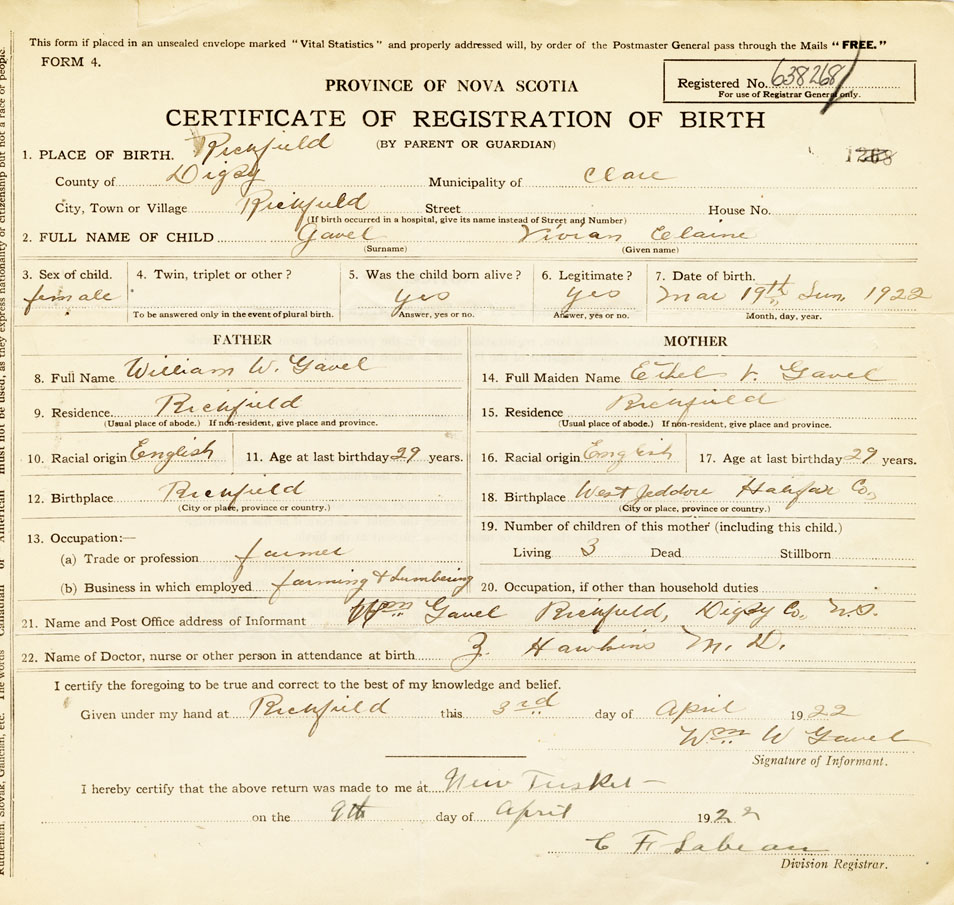 This form if placed in an unsealed envelope marked "Vital Statistics" and properly addressed will, by order of the Postmaster General pass through the Mails "FREE."
FORM 4.
Registered No. 638268
For use of Registrar General only.
PROVINCE OF NOVA SCOTIA
CERTIFICATE OF REGISTRATION OF BIRTH
(BY PARENT OR GUARDIAN)
1. PLACE OF BIRTH. Richfield
County of Digby Municipality of Clare
City, Town or Village Richfield Street House No.
(If birth occurred in a hospital, give its name instead of Street and Number)
2. FULL NAME OF CHILD Gavel Vivian Elaine
(Surname) (Given name)
3. Sex of child. 4. Twin, triplet or other? 5. Was the child born alive? 6. Legitimate? 7. Date of birth.
female yes yes Mar 19th Sun. 1922
To be answered only in the event of plural birth. Answer, yes or no. Answer, yes or no. Month, day, year.
FATHER MOTHER
8. Full Name William W. Gavel 14. Full Maiden Name Ethel V. Gavel
9. Residence. Richfield 15. Residence Richfield
(Usual place of abode.) If non-resident, give place and province. (Usual place of abode.) If non-resident, give place and province.
10. Racial origin English 11. Age at last birthday 29 years. 16. Racial origin English 17. Age at last birthday 29 years.
12. Birthplace Richfield 18. Birthplace West Jeddore Halifax Co.
(City or place, province or country.) (City or place, province or country.)
13. Occupation:— 19. Number of children of this mother (including this child.)
(a) Trade or profession farmer Living 3 Dead Stillborn
(b) Business in which employed farming & Lumbering 20. Occupation, if other than household duties
21. Name and Post Office address of Informant Wm Gavel Richfield, Digby Co. N.S.
22. Name of Doctor, nurse or other person in attendance at birth Z. Hawkins M.D.
I certify the foregoing to be true and correct to the best of my knowledge and belief.
Given under my hand at Richfield this 3rd day of April 1922
Wm W Gavel
Signature of Informant.
I hereby certify that the above return was made to me at New Tusket
on the 9th day of April 1922
C F Sabean
Division Registrar.